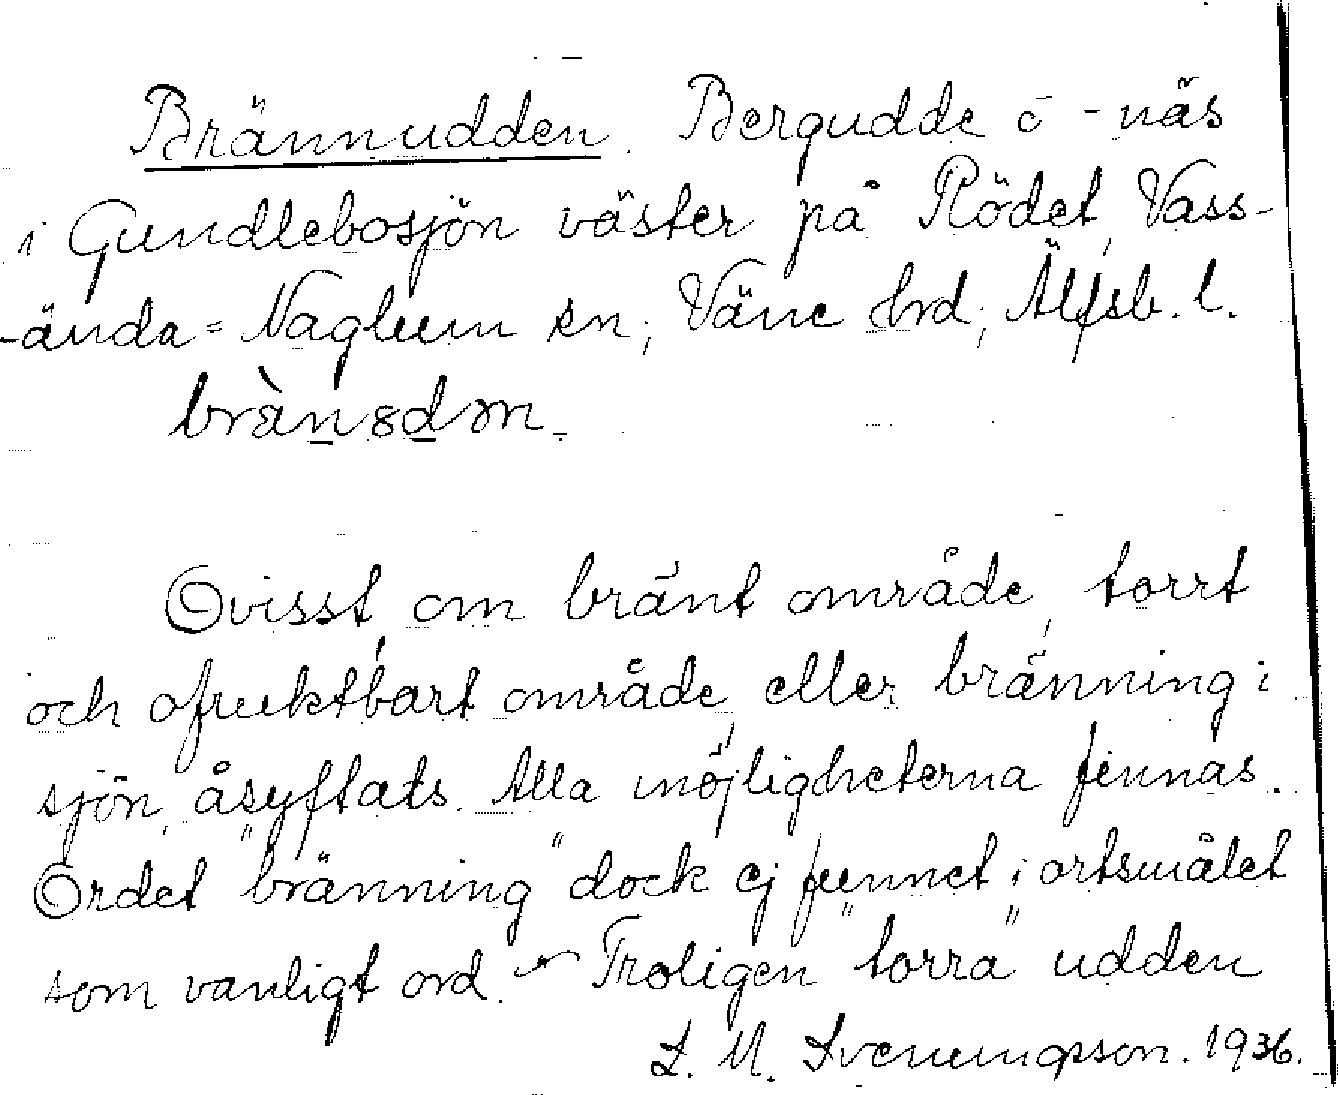 Brännudden. Bergudde o -näs
i Gundlebosjön väster på Rödet, Vass-
-ända-Naglum sn, Väne hrd, Älfsb. l.
Ovisst, om bränt område, torrt
och ofruktbart område, eller bränning i
sjön, åsyftats. Alla möjligheterna finnas.
Ordet "bränning" dock ej funnet i ortsmålet
som vanligt ord. - Troligen "torra" udden
S. M. Svenungsson. 1936.